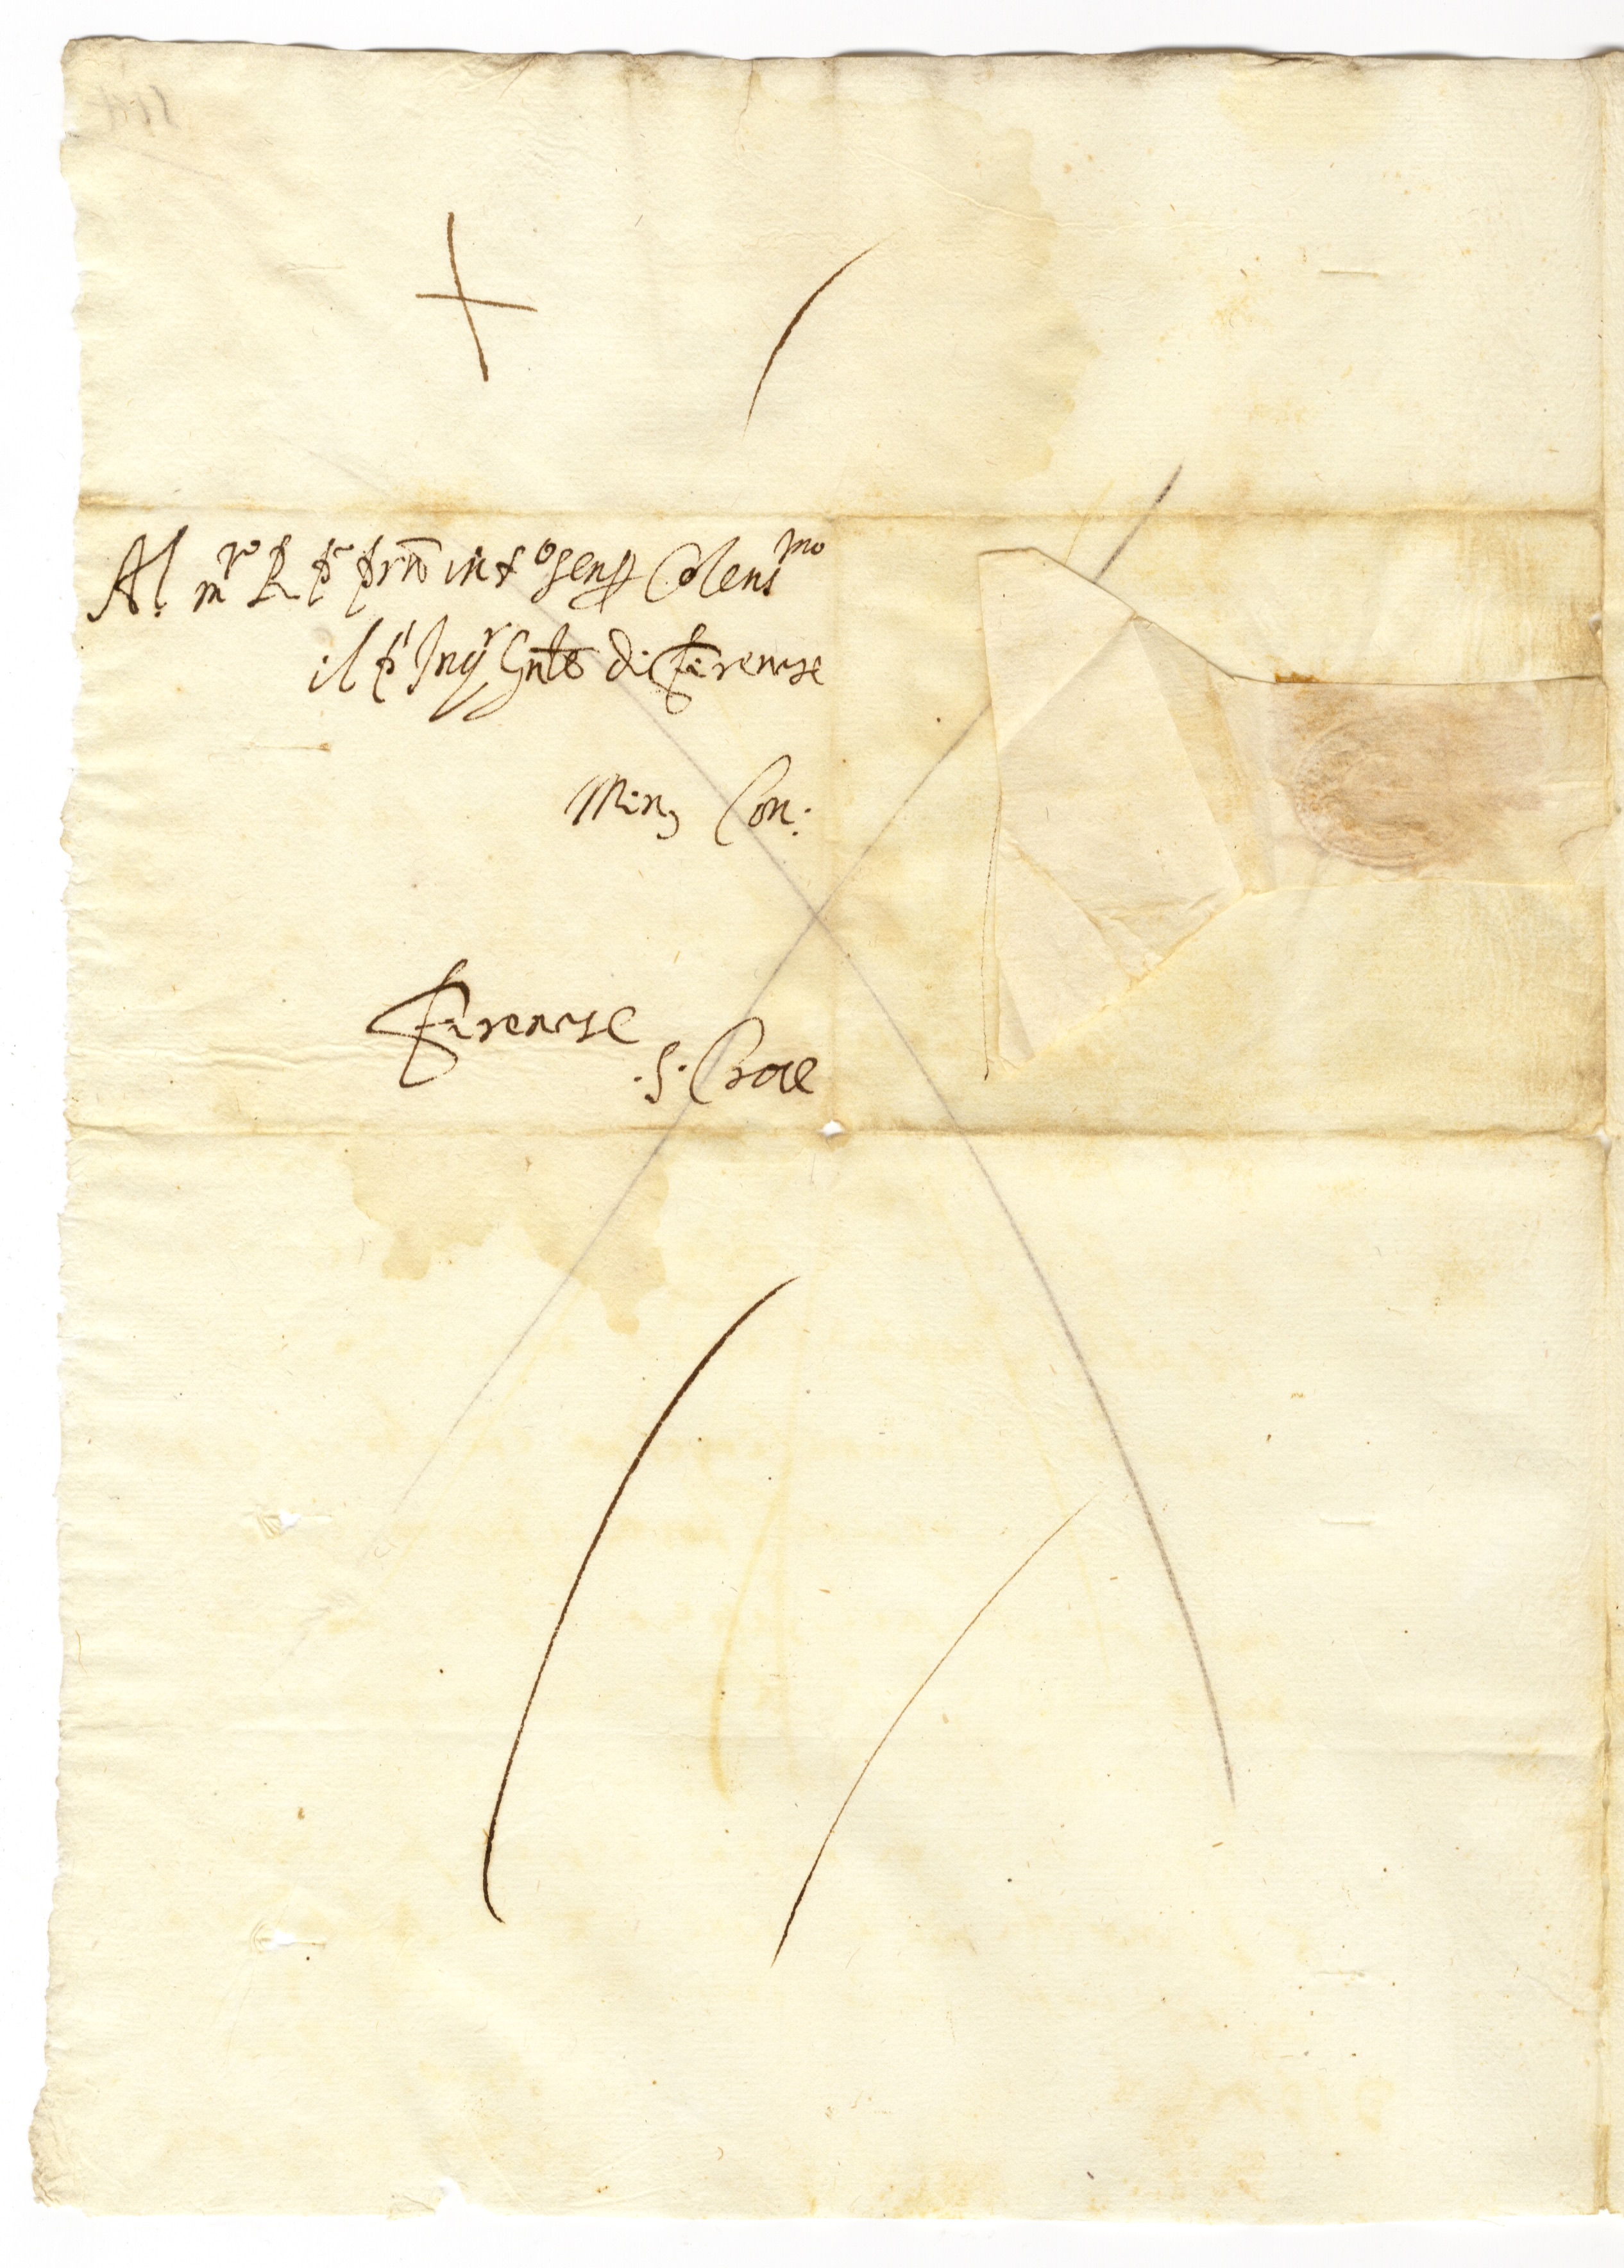 Al m.to R. P. Pron in X.o semp Colen.mo
il P. Inq.r Gnle di Firenze
Min. Con:
Firenze
.S. Croce